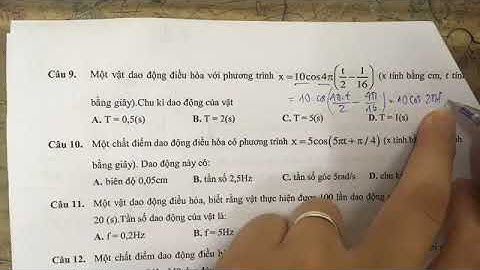 Câu 9. Một vật dao động điều hòa với phương trình x=10cos4π(t/2 − 1/16) (x tính bằng cm, t tính
= 10 cos(4π.t/2 − 4π/16) = 10 cos 2πt
bằng giây).Chu kì dao động của vật
A. T = 0,5(s) B. T = 2(s) C. T = 5(s) D. T = 1(s)
Câu 10. Một chất điểm dao động điều hòa có phương trình x=5cos(5πt+π/4) (x tính bằng
bằng giây). Dao động này có:
A. biên độ 0,05cm B. tần số 2,5Hz C. tần số góc 5rad/s D. chu
Câu 11. Một vật dao động điều hòa, biết rằng vật thực hiện được 100 lần dao động
20 (s).Tần số dao động của vật là:
A. f=0,2Hz B. f= 5Hz
Câu 12. Một chất điểm dao động điều